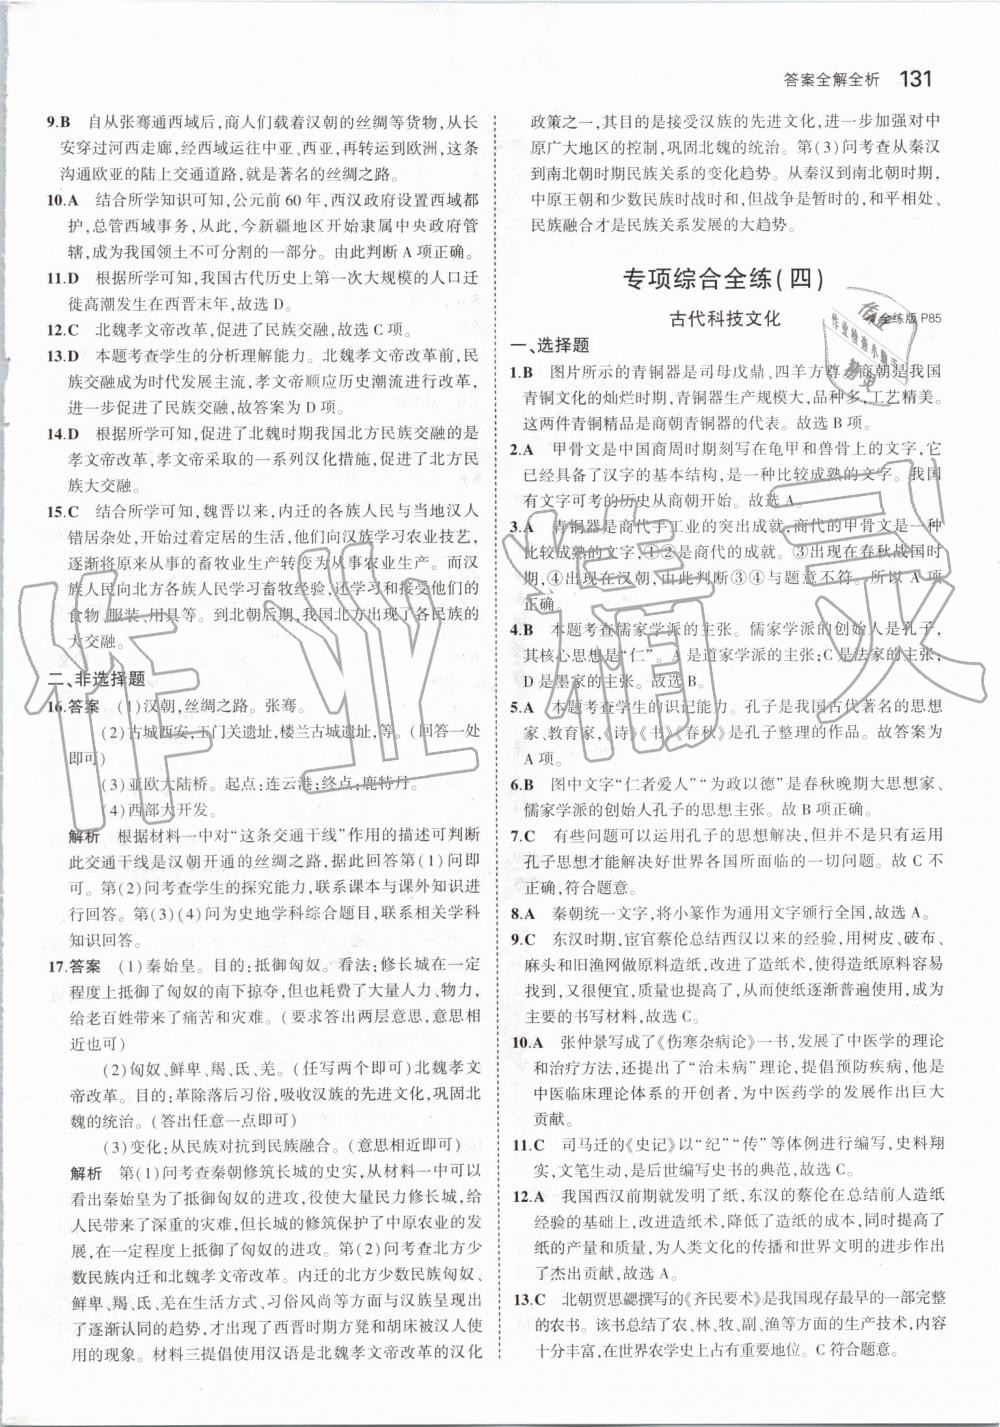 答案全解全析 131
9.B 自从张骞通西域后,商人们载着汉朝的丝绸等货物,从长
安穿过河西走廊,经西域运往中亚、西亚,再转运到欧洲,这条
沟通欧亚的陆上交通道路,就是著名的丝绸之路。
10.A 结合所学知识可知,公元前 60 年,西汉政府设置西域都
护,总管西域事务,从此,今新疆地区开始隶属中央政府管
辖,成为我国领土不可分割的一部分。由此判断 A 项正确。
11.D 根据所学可知,我国古代历史上第一次大规模的人口迁
徙高潮发生在西晋末年,故选 D。
12.C 北魏孝文帝改革,促进了民族交融,故选 C 项。
13.D 本题考查学生的分析理解能力。北魏孝文帝改革前,民
族交融成为时代发展主流,孝文帝顺应历史潮流进行改革,
进一步促进了民族交融,故答案为 D 项。
14.D 根据所学可知,促进了北魏时期我国北方民族交融的是
孝文帝改革,孝文帝采取的一系列汉化措施,促进了北方民
族大交融。
15.C 结合所学可知,魏晋以来,内迁的各族人民与当地汉人
错居杂处,开始过着定居的生活,他们向汉族学习农业技艺,
逐渐将原来从事的畜牧业生产转变为从事农业生产。而汉
族人民向北方各族人民学习畜牧经验,还学习和接受他们的
食物、服装、用具等。到北朝后期,我国北方出现了各民族的
大交融。
二、非选择题
16.答案 (1)汉朝,丝绸之路。张骞。
(2)古城西安,玉门关遗址,楼兰古城遗址,等。(回答一处
即可)
(3)亚欧大陆桥。起点:连云港;终点:鹿特丹。
(4)西部大开发。
解析 根据材料一中对“这条交通干线”作用的描述可判断
此交通干线是汉朝开通的丝绸之路,据此回答第(1)问即
可。第(2)问考查学生的探究能力,联系课本与课外知识进
行回答。第(3)(4)问为史地学科综合题目,联系相关学科
知识回答。
17.答案 (1)秦始皇。目的:抵御匈奴。看法:修长城在一定
程度上抵御了匈奴的南下掠夺,但也耗费了大量人力、物力,
给老百姓带来了痛苦和灾难。(要求答出两层意思,意思相
近也可)
(2)匈奴、鲜卑、羯、氐、羌。(任写两个即可)北魏孝文
帝改革。目的:革除落后习俗,吸收汉族的先进文化,巩固北
魏的统治。(答出任意一点即可)
(3)变化:从民族对抗到民族融合。(意思相近即可)
解析 第(1)问考查秦朝修筑长城的史实,从材料一中可以
看出秦始皇为了抵御匈奴的进攻,役使大量民力修长城,给
人民带来了深重的灾难,但长城的修筑保护了中原农业的发
展,在一定程度上抵御了匈奴的进攻。第(2)问考查北方少
数民族内迁和北魏孝文帝改革。内迁的北方少数民族匈奴、
鲜卑、羯、氐、羌在生活方式、习俗风尚等方面与汉族呈现出
了逐渐认同的趋势,才出现了西晋时期方凳和胡床被汉人使
用的现象。材料三提倡使用汉语是北魏孝文帝改革的汉化
政策之一,其目的是接受汉族的先进文化,进一步加强对中
原广大地区的控制,巩固北魏的统治。第(3)问考查从秦汉
到南北朝时期民族关系的变化趋势。从秦汉到南北朝时期,
中原王朝和少数民族时战时和,但战争是暂时的,和平相处、
民族融合才是民族关系发展的大趋势。
专项综合全练(四)
古代科技文化
全练版 P85
一、选择题
1.B 图片所示的青铜器是司母戊鼎、四羊方尊。商朝是我国
青铜文化的灿烂时期,青铜器生产规模大,品种多,工艺精美。
这两件青铜精品是商朝青铜器的代表。故选 B 项。
2.A 甲骨文是中国商周时期刻写在龟甲和兽骨上的文字,它
已经具备了汉字的基本结构,是一种比较成熟的文字。我国
有文字可考的历史从商朝开始。故选 A。
3.A 青铜器是商代手工业的突出成就,商代的甲骨文是一种
比较成熟的文字,①②是商代的成就。③出现在春秋战国时
期,④出现在汉朝,由此判断③④与题意不符。所以 A 项
正确。
4.B 本题考查儒家学派的主张。儒家学派的创始人是孔子,
其核心思想是“仁”。A 是道家学派的主张;C 是法家的主张;
D 是墨家的主张。故选 B。
5.A 本题考查学生的识记能力。孔子是我国古代著名的思想
家、教育家,《诗》《书》《春秋》是孔子整理的文献。故答案为
A 项。
6.B 图中文字“仁者爱人”“为政以德”是春秋晚期大思想家、
儒家学派的创始人孔子的思想主张。故 B 项正确。
7.C 有些问题可以运用孔子的思想解决,但并不是只有运用
孔子思想才能解决好世界各国所面临的一切问题。故 C 不
正确,符合题意。
8.A 秦朝统一文字,将小篆作为通用文字颁行全国,故选 A。
9.C 东汉时期,宦官蔡伦总结西汉以来的经验,用树皮、破布、
麻头和旧渔网做原料造纸,改进了造纸术,使得造纸原料容易
找到,又很便宜,提高了纸的质量,从而使纸逐渐普遍使用,成为
主要的书写材料,故选 C。
10.A 张仲景写成了《伤寒杂病论》一书,发展了中医学的理论
和治疗方法,还提出了“治未病”理论,提倡预防疾病,他是
中医临床理论体系的开创者,为中医药学的发展作出巨大
贡献。
11.C 司马迁的《史记》以“纪”“传”等体例进行编写,史料翔
实,文笔生动,是后世编写史书的典范,故选 C。
12.A 我国西汉前期就发明了纸,东汉的蔡伦在总结前人造纸
经验的基础上,改进了造纸术,降低了造纸的成本,同时提高了
纸的产量和质量,为人类文化的传播和世界文明的进步作出
了杰出贡献,故选 A。
13.C 北朝贾思勰撰写的《齐民要术》是我国现存最早的一部完整
的农书。该书总结了农、林、牧、副、渔等方面的生产技术,内容
十分丰富,在世界农学史上占有重要地位。C 符合题意。
作业精灵